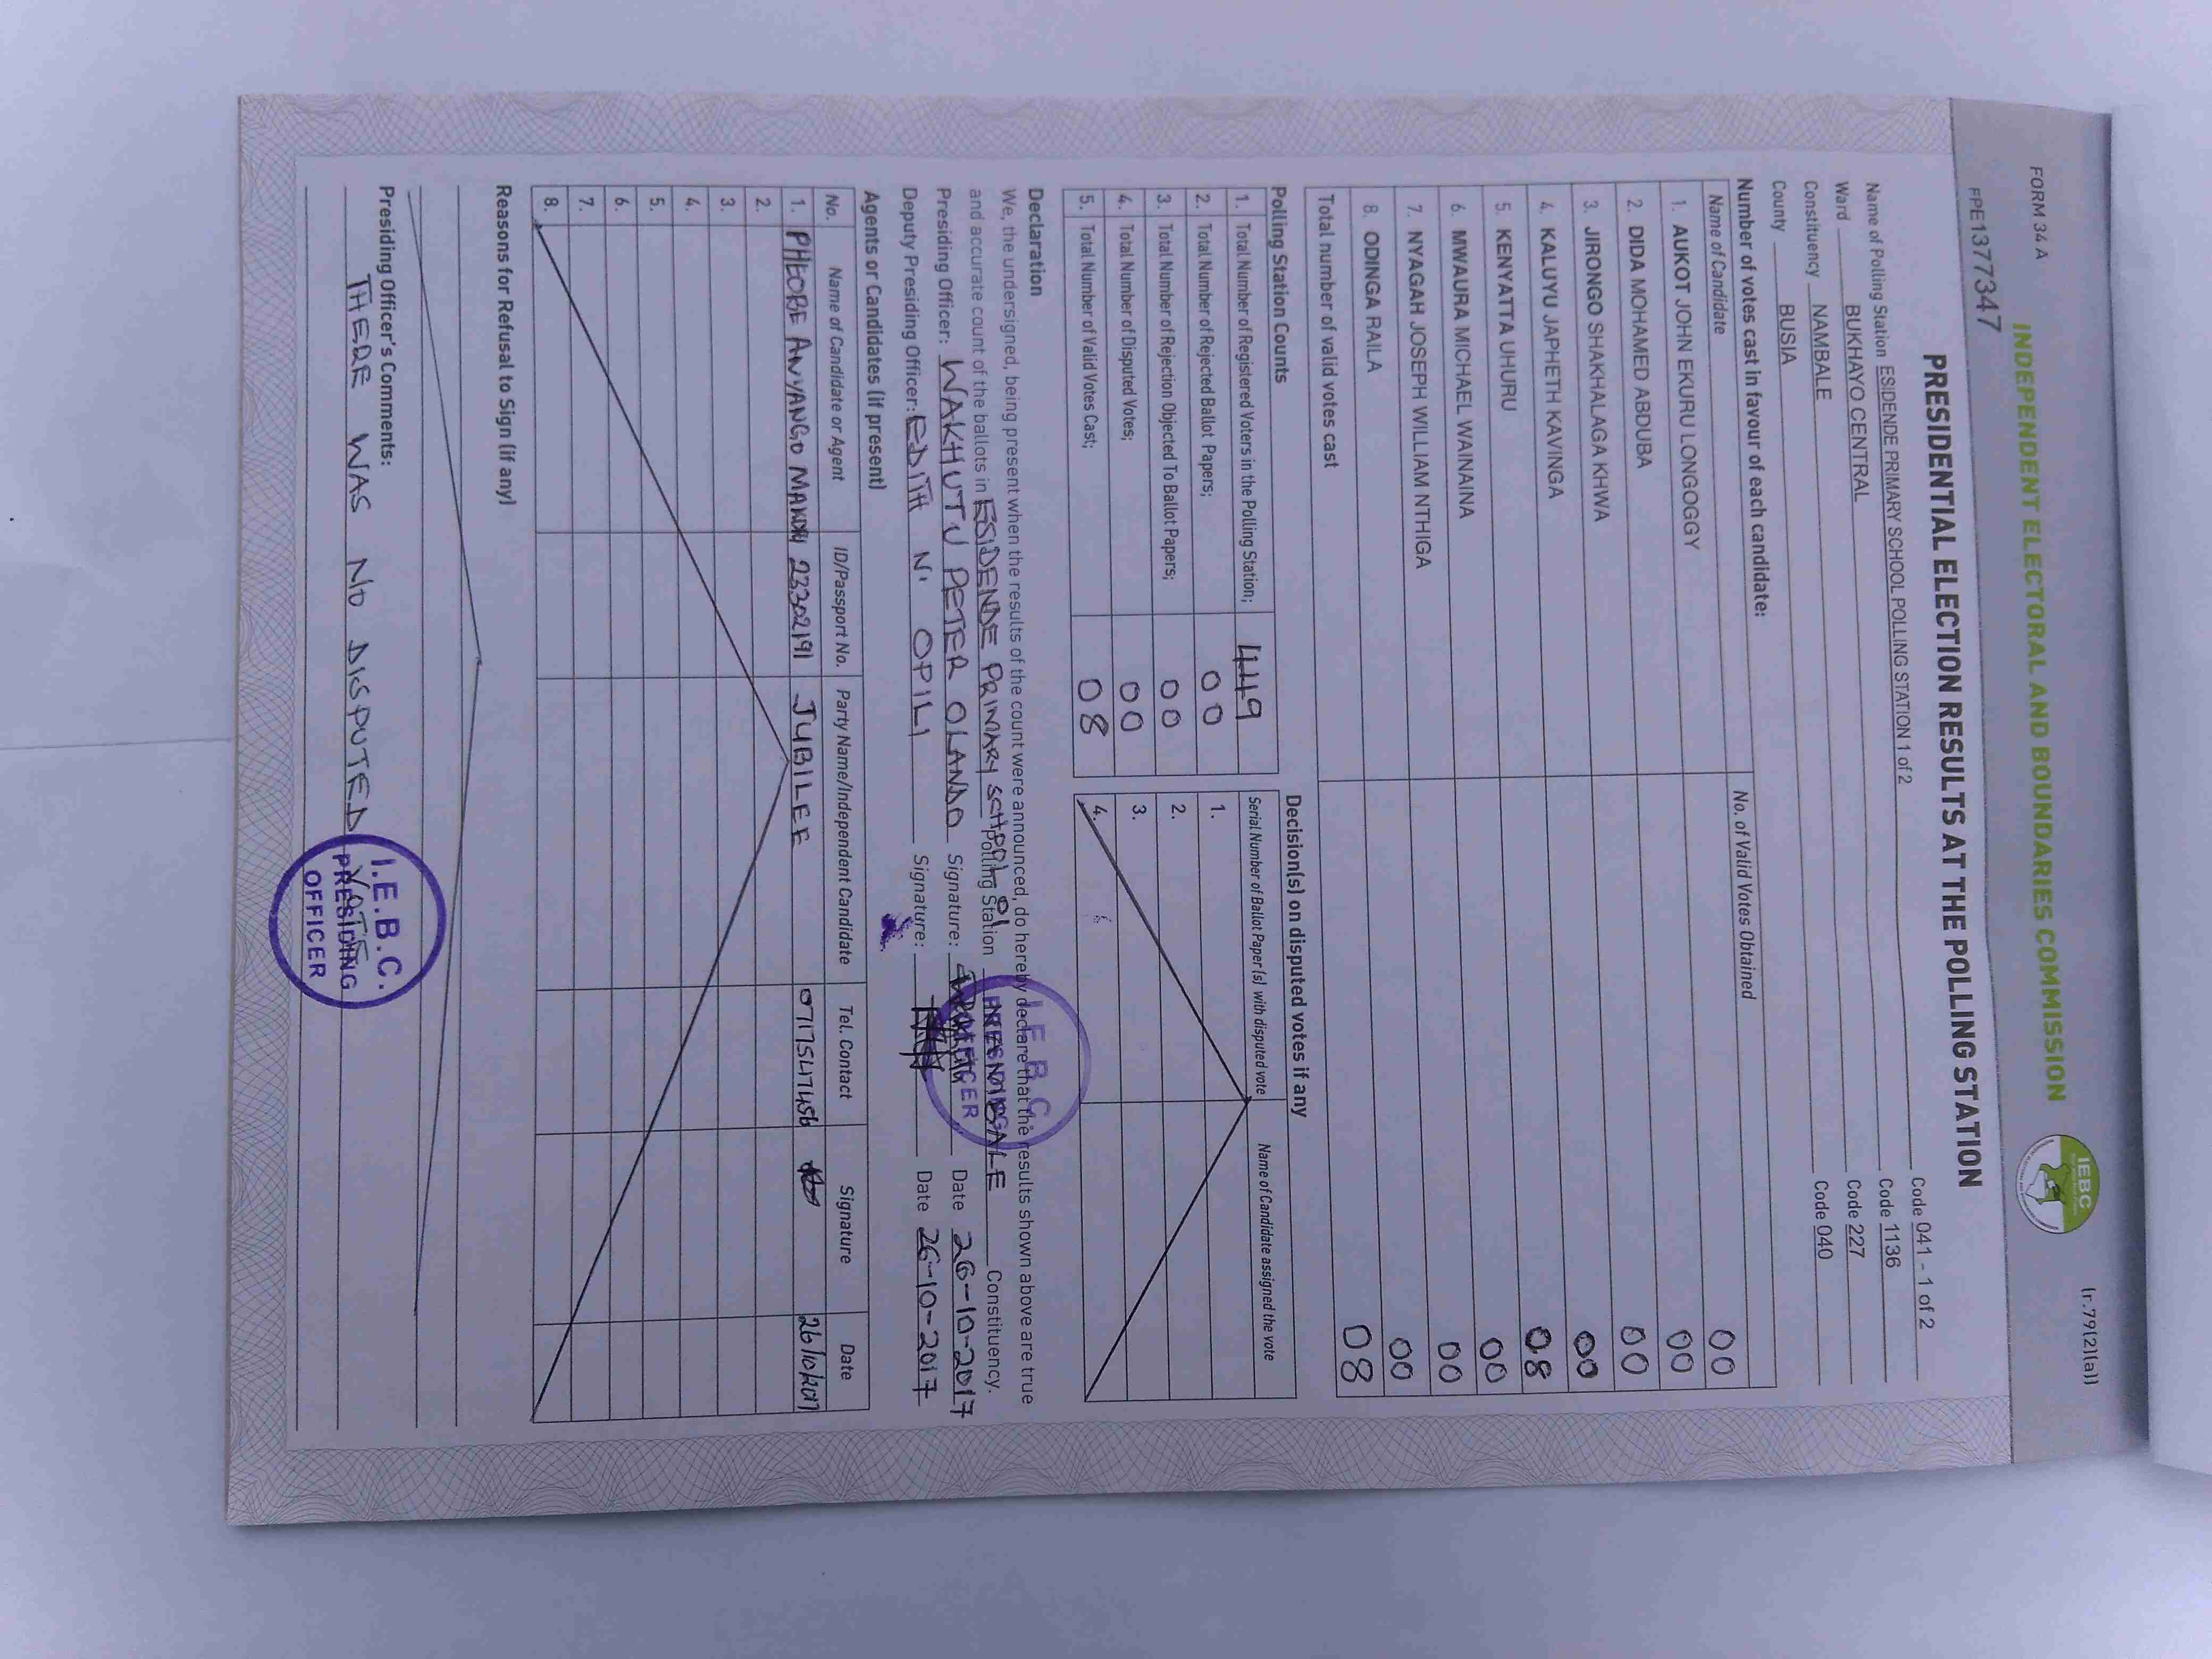 FORM 34 A
(r.79(2)(a))
INDEPENDENT ELECTORAL AND BOUNDARIES COMMISSION
IEBC
PE137347
PRESIDENTIAL ELECTION RESULTS AT THE POLLING STATION
Name of Polling Station ESIDENDE PRIMARY SCHOOL POLLING STATION 1 of 2 Code 041 - 1 of 2
Ward BUKHAYO CENTRAL Code 1136
Constituency NAMBALE Code 227
County BUSIA Code 040
Number of votes cast in favour of each candidate:
Name of Candidate No. of Valid Votes Obtained
1. AUKOT JOHN EKURU LONGOGGY 00
2. DIDA MOHAMED ABDUBA 00
3. JIRONGO SHAKHALAGA KHWA 00
4. KALUYU JAPHETH KAVINGA 00
5. KENYATTA UHURU 08
6. MWAURA MICHAEL WAINAINA 00
7. NYAGAH JOSEPH WILLIAM NTHIGA 00
8. ODINGA RAILA 00
Total number of valid votes cast 08
Polling Station Counts
1. Total Number of Registered Voters in the Polling Station; 449
2. Total Number of Rejected Ballot Papers; 00
3. Total Number of Rejection Objected To Ballot Papers; 00
4. Total Number of Disputed Votes; 00
5. Total Number of Valid Votes Cast; 08
Decision(s) on disputed votes if any
Serial Number of Ballot Paper (s) with disputed vote Name of Candidate assigned the vote
1.
2.
3.
4.
Declaration
We, the undersigned, being present when the results of the count were announced, do hereby declare that the results shown above are true
and accurate count of the ballots in ESIDENDE PRIMARY SCHOOL 01 Polling Station NAMBALE Constituency.
Presiding Officer: WAKHUTU PETER OLANDO Signature: Date 26-10-2017
Deputy Presiding Officer: EDITH N. OPILI Signature: Date 26-10-2017
I.E.B.C.
PRESIDING
OFFICER
Agents or Candidates (if present)
No. Name of Candidate or Agent ID/Passport No. Party Name/Independent Candidate Tel. Contact Signature Date
1. PHEOBE ANYANGO 23302191 JUBILEE 0717547456 26/10/2017
2.
3.
4.
5.
6.
7.
8.
Reasons for Refusal to Sign (if any)
Presiding Officer's Comments:
THERE WAS NO DISPUTED VOTE
I.E.B.C.
PRESIDING
OFFICER